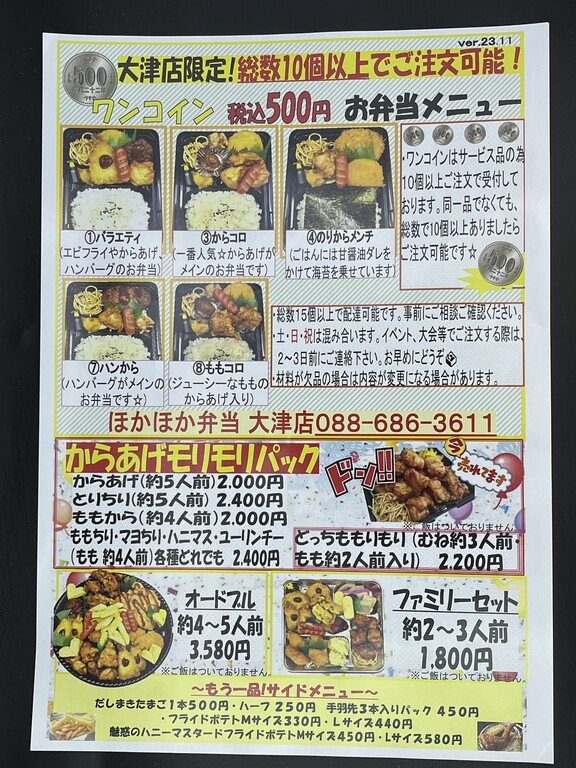 ver.23.11
大津店限定!総数10個以上でご注文可能!
ワンコイン 税込500円 お弁当メニュー
①バラエティ
(エビフライやからあげ、
ハンバーグのお弁当)
③からコロ
(一番人気☆からあげが
メインのお弁当です)
④のりからメンチ
(ごはんには甘醤油ダレを
かけて海苔を乗せています)
・ワンコインはサービス品の為
10個以上ご注文で受付して
おります。同一品でなくても、
総数で10個以上ありましたら
ご注文可能です☆
⑦ハンから
(ハンバーグがメインの
お弁当です☆)
⑧ももコロ
(ジューシーなももの
からあげ入り)
・総数15個以上で配達可能です。事前にご相談ご確認ください。
・土・日・祝は混み合います。イベント、大会等でご注文する際は、
2~3日前にご連絡下さい。お早めにどうぞ
・材料が欠品の場合は内容が変更になる場合があります。
ほかほか弁当 大津店088-686-3611
からあげモリモリパック
からあげ(約5人前)2.000円
とりちり(約5人前) 2.400円
ももから(約4人前)2.000円
ももちり・マヨちり・ハニマス・ユーリンチー
(もも 約4人前)各種どれでも 2.400円
ドーン!!
今売れてます
※ご飯はついておりません。
どっちももりもり(むね約3人前・
もも約2人前入り) 2.200円
オードブル
約4~5人前
3,580円
※ご飯はついておりません。
ファミリーセット
約2~3人前
1,800円
※ご飯はついておりません。
~もう一品!サイドメニュー~
だしまきたまご1本500円・ハーフ 250円 手羽先3本入りパック 450円
・フライドポテトMサイズ330円・Lサイズ440円
魅惑のハニーマスタードフライドポテトMサイズ450円・Lサイズ580円